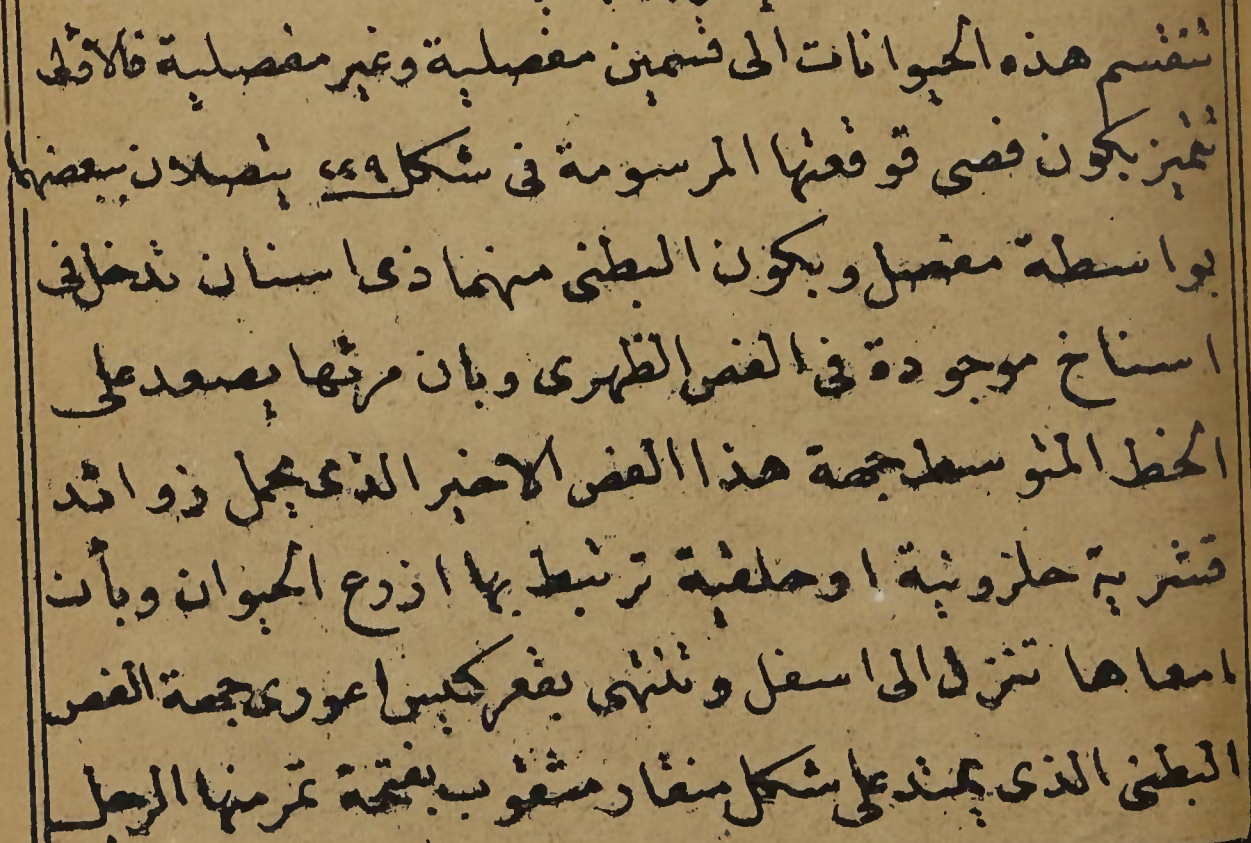 تنقسم هذه الحيوانات الى قسمين مفصلية وغير مفصلية فالاولى
تتميز بكون فصى قوقعتها المرسومة فى شكل ٤٤٩ يتصلان ببعضهما
بواسطة مفصل ويكون البطنى منهما ذى اسنان تدخل فى
اسناخ موجودة فى الفص الظهرى وبان مريّها يصعد على
الخط المتوسط جهة هذا الفص الاخير الذى يحمل زوائد
قشرية حلزونية او حلقية ترتبط بها اذرع الحيوان وبأن
امعاها تنزل الى اسفل وتنتهى بقعر كيس اعورى جهة الفص
البطنى الذى يمتد على شكل منقار مثقوب بفتحة تمر منها الرجل